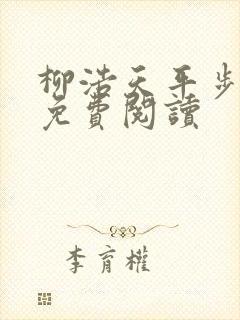 柳浩天平步
免費閱讀
李育權